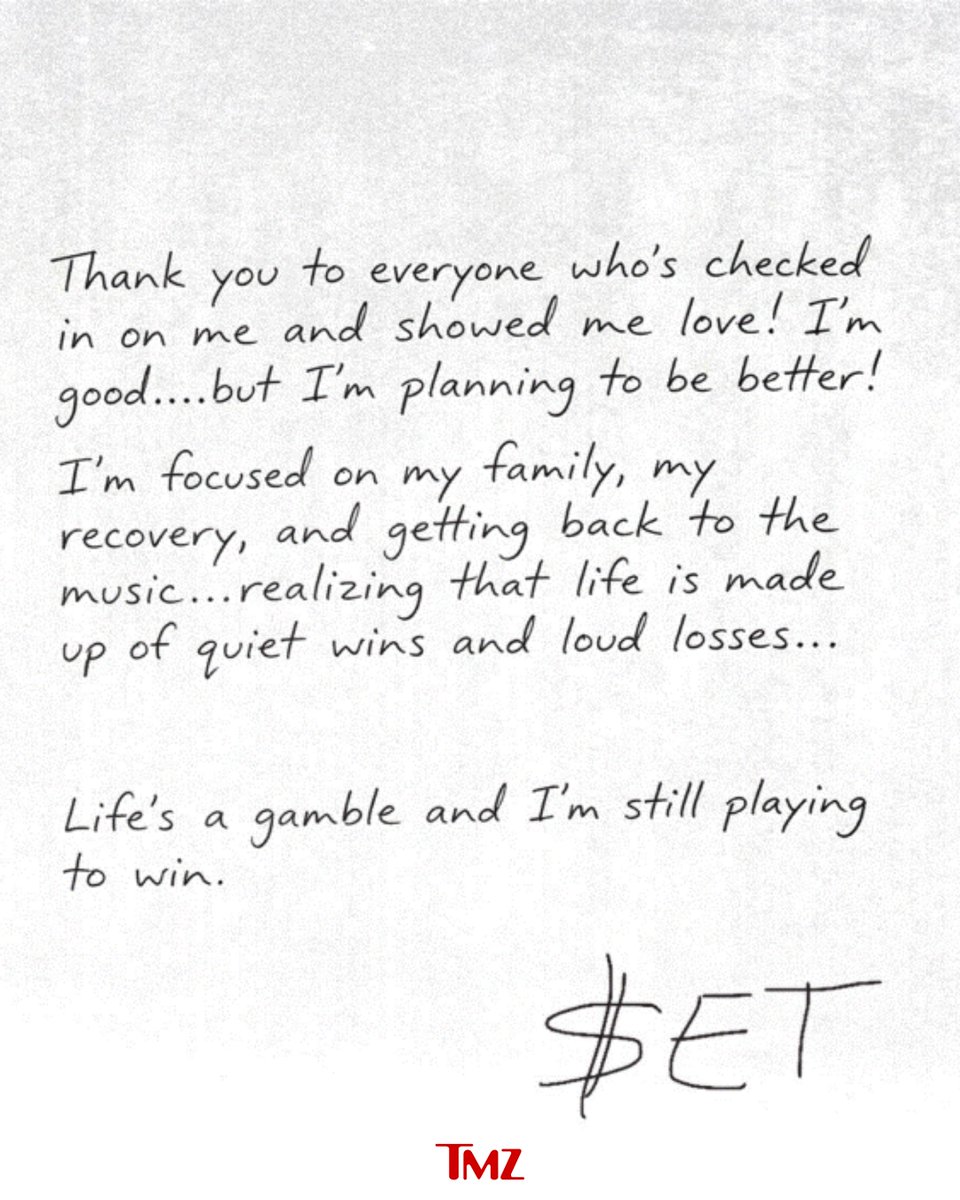 Thank you to everyone who's checked
in on me and showed me love! I'm
good....but I'm planning to be better!
I'm focused on my family, my
recovery, and getting back to the
music...realizing that life is made
up of quiet wins and loud losses...
Life's a gamble and I'm still playing
to win.
$ET
TMZ